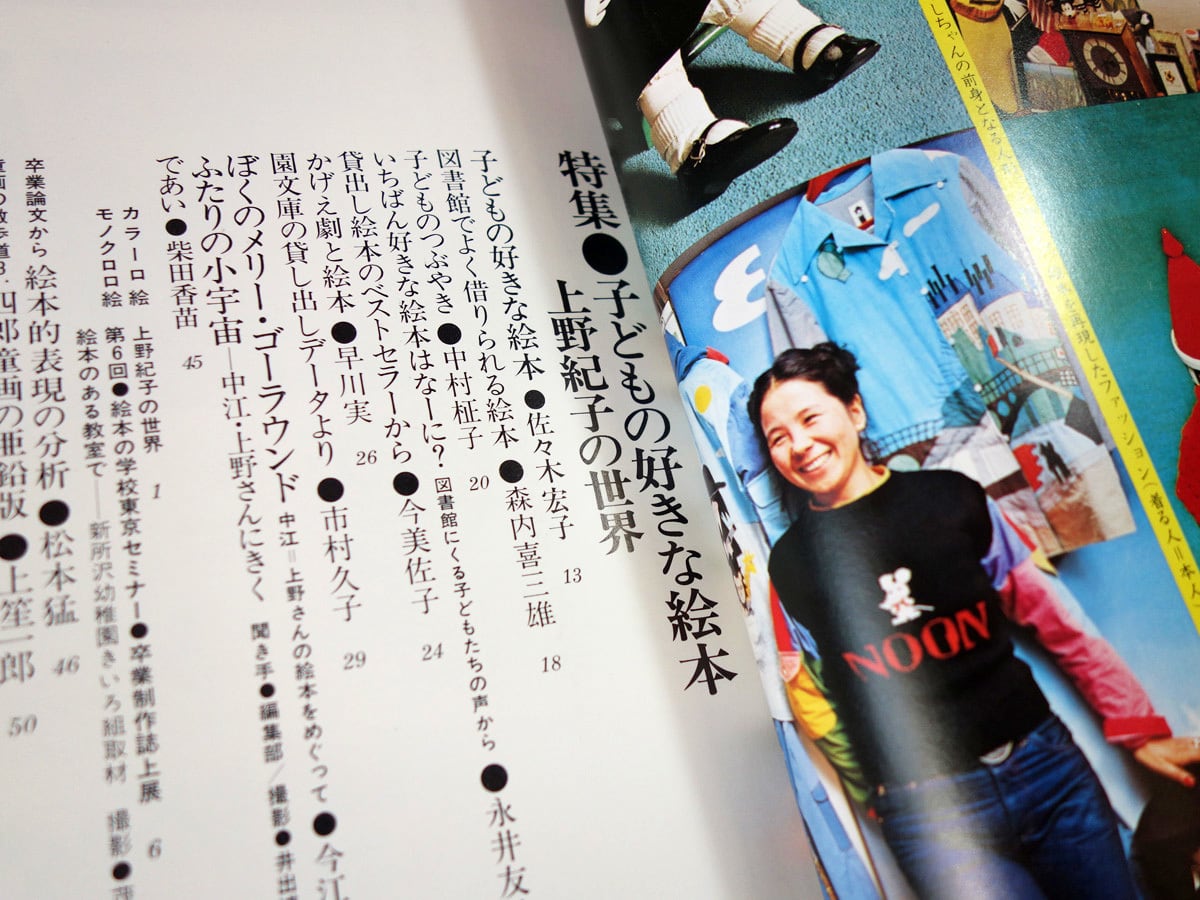 特集●子どもの好きな絵本
上野紀子の世界
子どもの好きな絵本●佐々木宏子 13
図書館でよく借りられる絵本●森内喜三雄 18
子どものつぶやき●中村柾子 20
いちばん好きな絵本はなーに? 図書館にくる子どもたちの声から●永井友
貸出し絵本のベストセラーから●今美佐子 24
かげえ劇と絵本●早川実 26
園文庫の貸し出しデータより●市村久子 29
ぼくのメリー・ゴーラウンド 中江=上野さんの絵本をめぐって●今江
ふたりの小宇宙―中江・上野さんにきく 聞き手●編集部/撮影●井出
であい●柴田香苗 45
カラー口絵 上野紀子の世界 1
モノクロ口絵 第6回●絵本の学校東京セミナー●卒業制作誌上展 6
絵本のある教室で――新所沢幼稚園きいろ組取材 撮影●
卒業論文から 絵本的表現の分析●松本猛 46
童画の散歩道8. 四郎童画の亜鉛版●上笙一郎 50
しちゃんの前身となる人
を再現したファッション〈着る人=本人
NOON